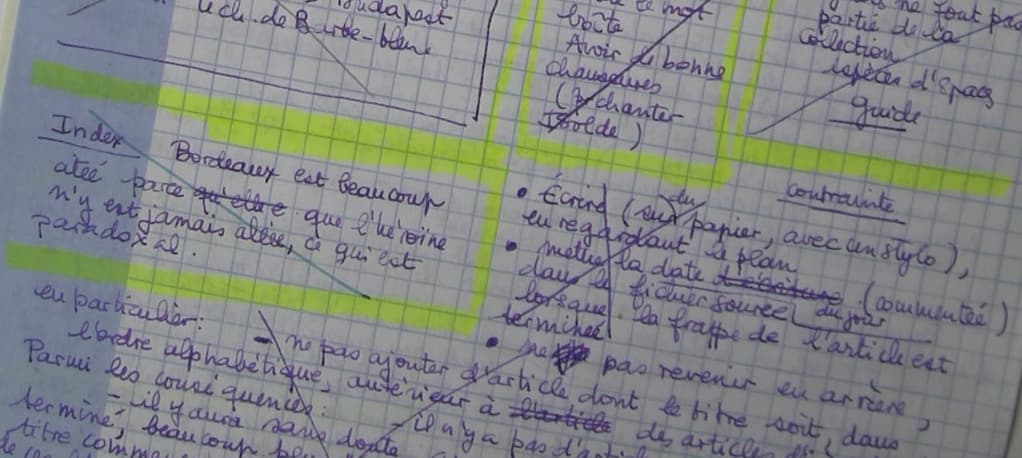 Budapest
ch. de Barbe-bleue
le mot
boîte
Avoir de bonne
chaussures
(chanter
Isolde)
ne font pas
partie de la
collection
espèces d'Espaces
guide
Index
Bordeaux est beaucoup
cité parce qu'elle que l'héroïne
n'y est jamais allée, ce qui est
paradoxal.
contrainte
• Écrire (sur du papier, avec un stylo),
en regardant le plan
• mettre la date (commentée)
dans le fichier source du jour
lorsque la frappe de l'article est
terminée
• ne pas revenir en arrière,
en particulier:
- ne pas ajouter d'article dont le titre soit, dans
l'ordre alphabétique, antérieur à l'article des articles
Parmi les conséquences:
- il y aura sans doute
- il n'y a pas
terminé, beaucoup
titre